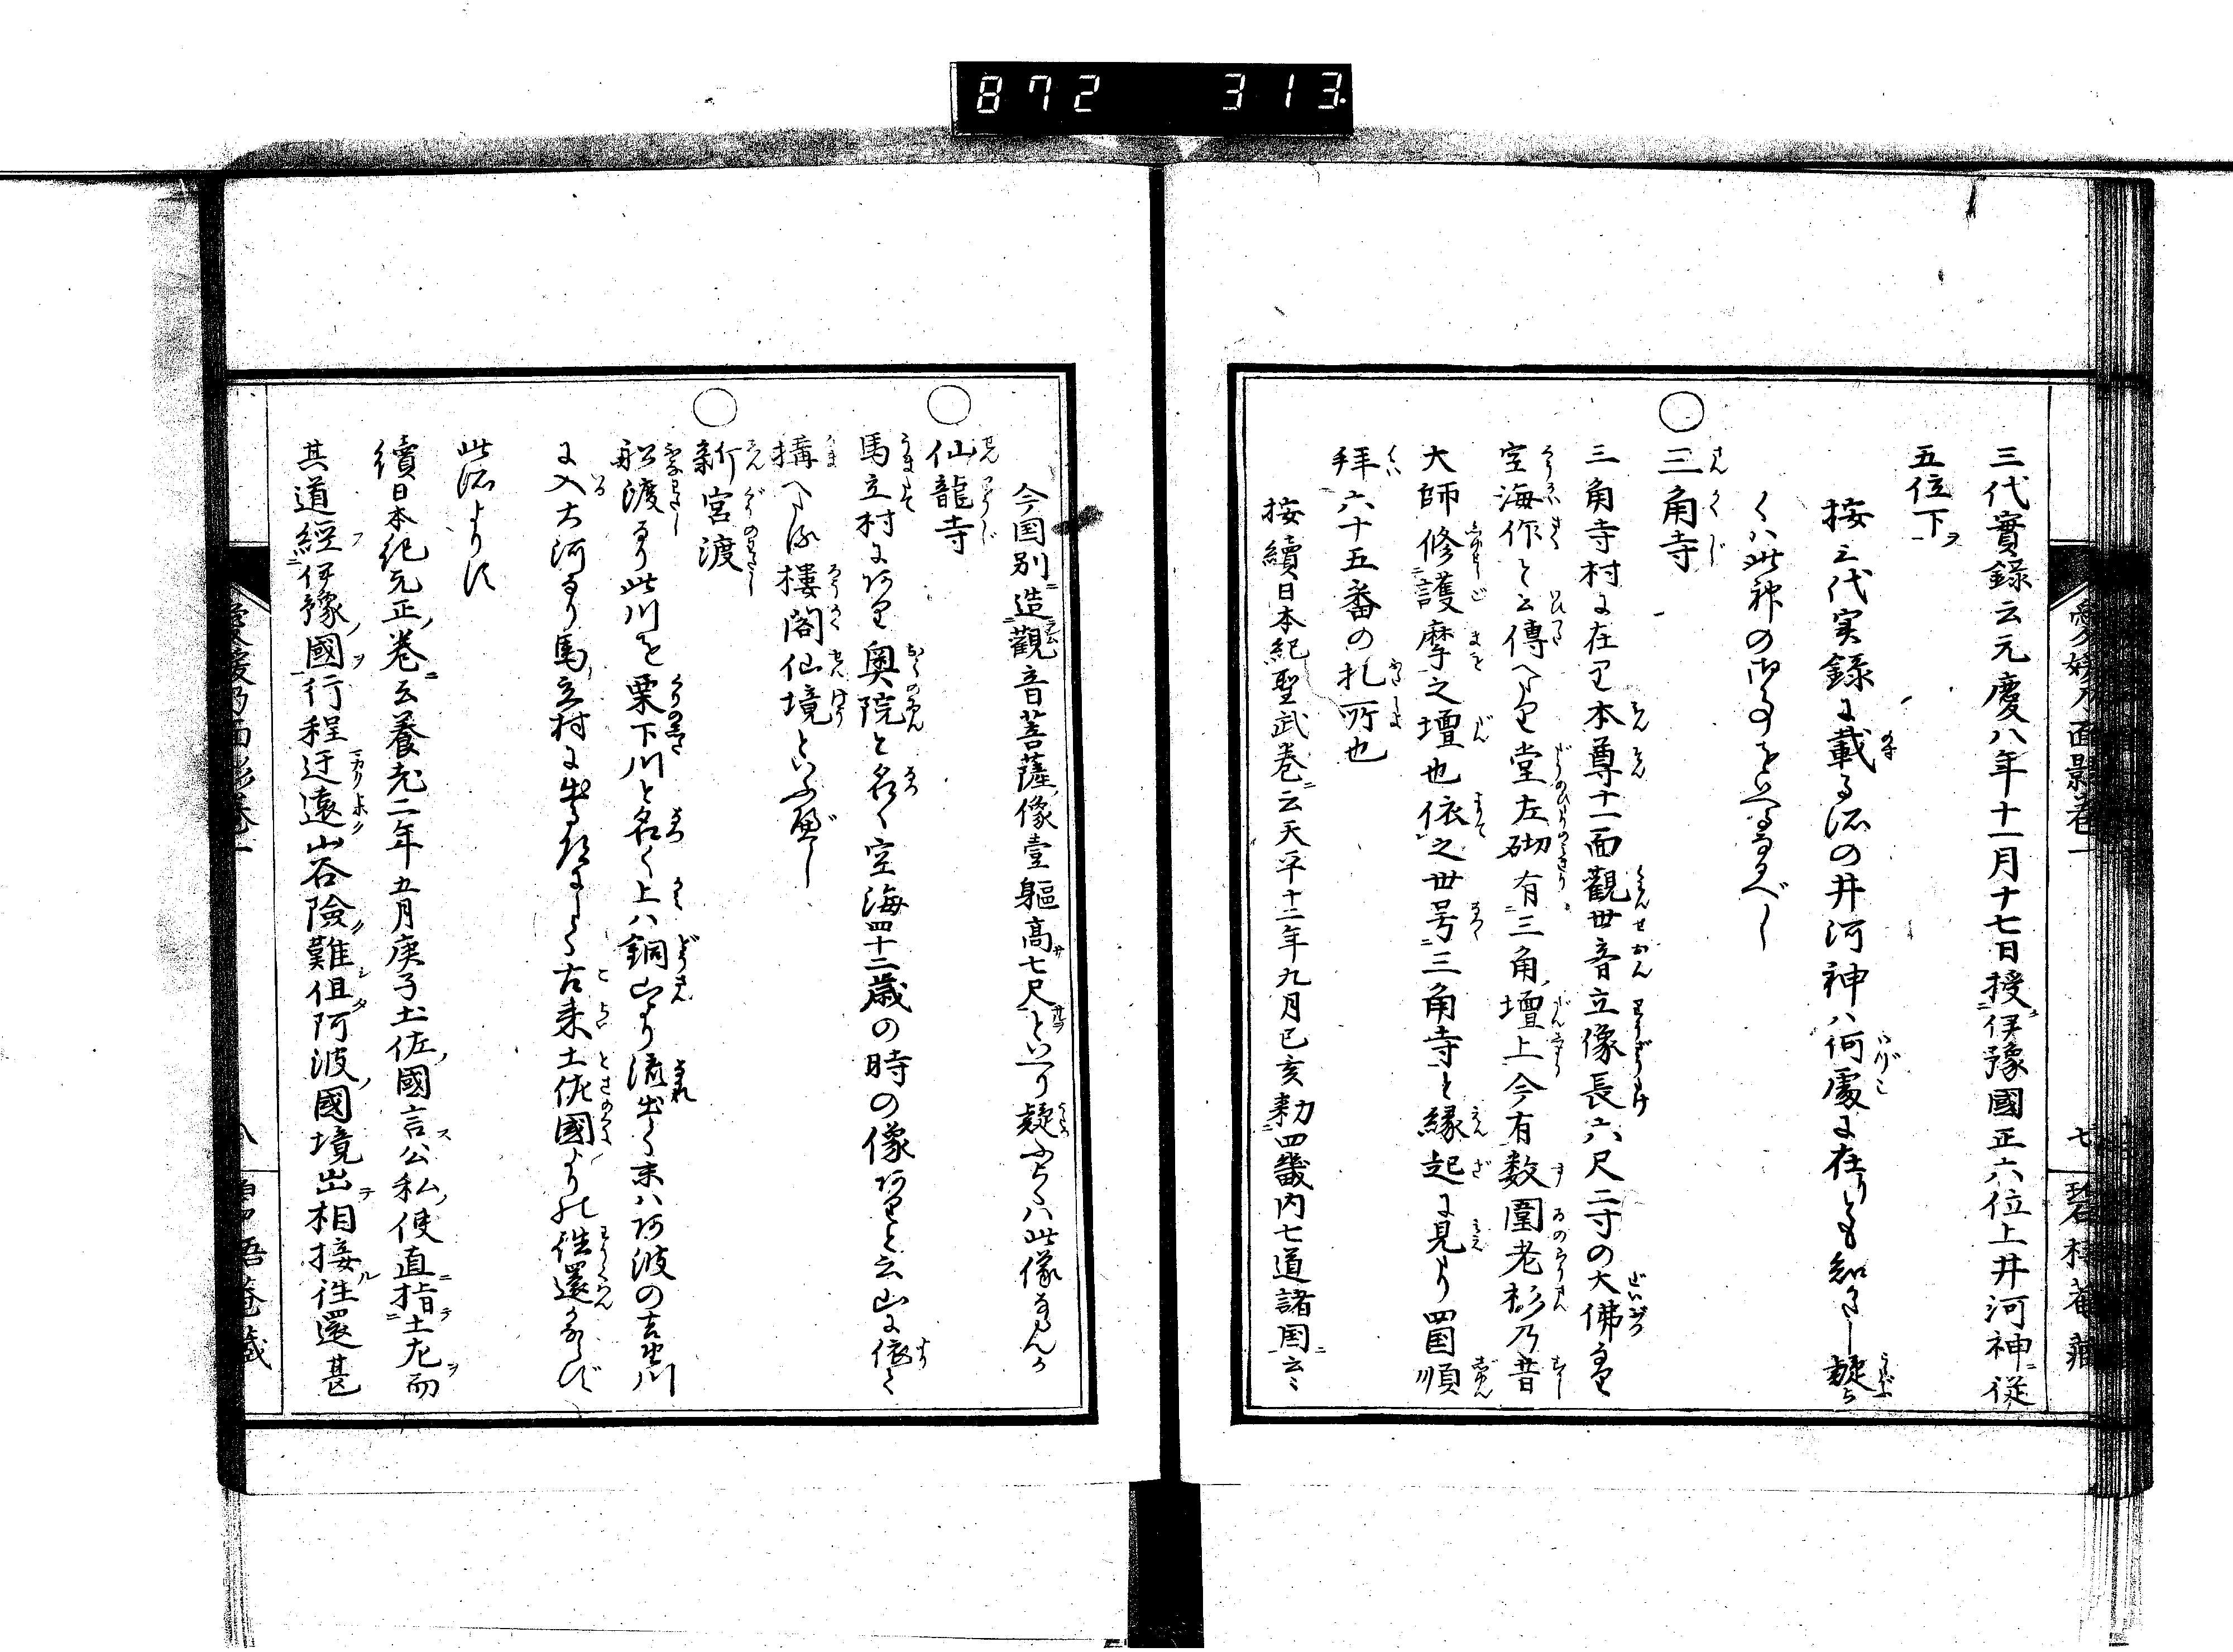 872 313.
愛媛乃面影巻一
七
碧梧菴藏
三代實録云元慶八年十一月十七日授伊豫國正六位上井河神従
五位下
按三代実録に載る所の井河神ハ何處に在りとも知らす疑ら
くハ此神の御事を云へるなるべし
○三角寺
三角寺村に在り本尊十一面觀世音立像長六尺二寸の大佛なり
空海作と云傳へたり堂左砌有三角壇上今有数圍老杉乃昔
大師修護摩之壇也依之世号三角寺と縁起に見えたり四国順
拝六十五番の札所也
按續日本紀聖武巻云天平十二年九月己亥勅四畿内七道諸国云々
今国別造觀音菩薩像壹軀高七尺といへり疑ふらくハ此像ならんか
○仙龍寺
馬立村にあり奥院と名く空海四十二歳の時の像ありと云山に依て
構へたる樓閣仙境といふべし
○新宮渡
船渡なり此川を栗下川と名く上ハ銅山より流出て末ハ阿波の吉野川
に入大河なり馬立村に出る所にして古来土佐國よりの往還ならび
此所よりす
續日本紀元正巻云養老二年五月庚子土佐國言公私使直指土左而
其道經伊豫國行程迂遠山谷險難但阿波國境出相接往還甚
愛媛乃面影巻一
八
碧梧菴藏